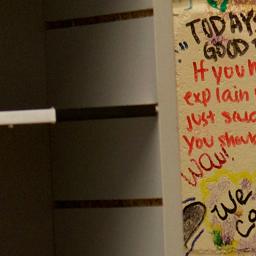 TODAY
GOOD
If you h
explain
just
you shou
WOW!
We